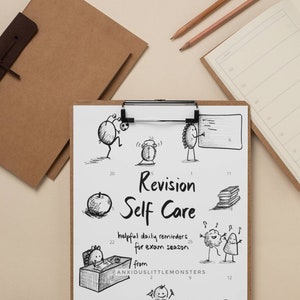 Revision
Self Care
helpful daily reminders
for exam season
from
@ANXIOUSLITTLEMONSTERS